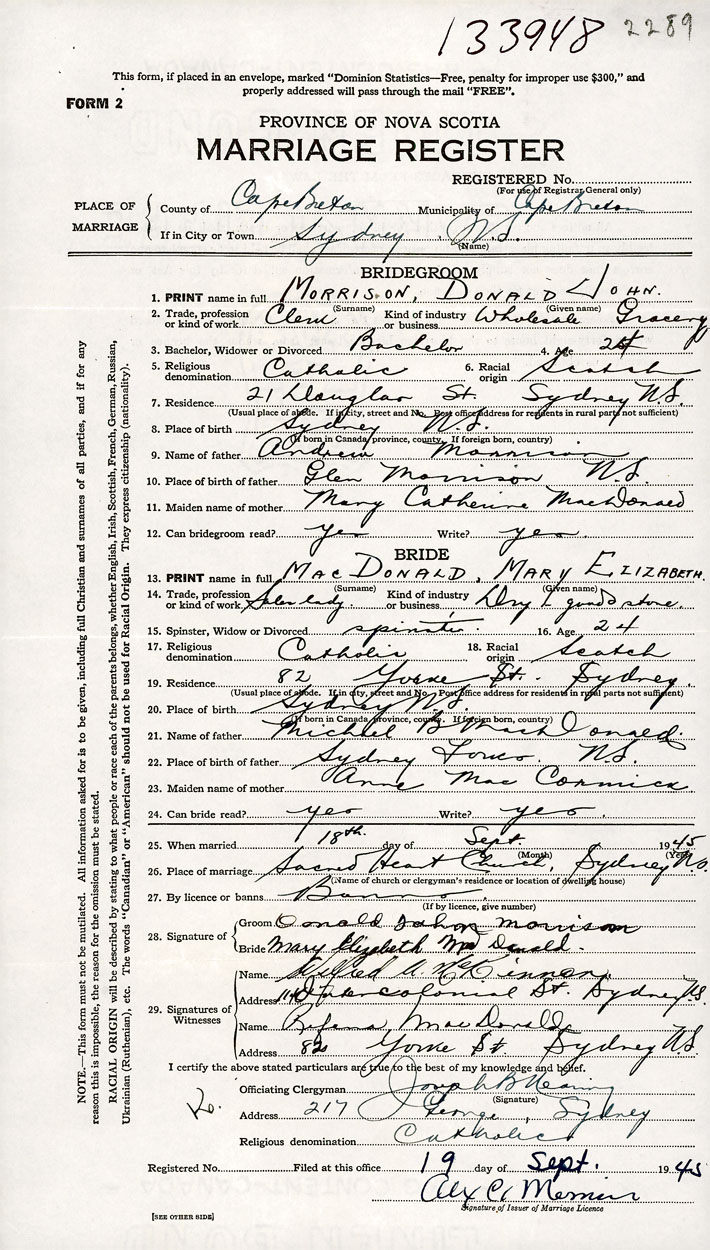 133948 2289
This form, if placed in an envelope, marked "Dominion Statistics—Free, penalty for improper use $300," and
properly addressed will pass through the mail "FREE".
FORM 2
PROVINCE OF NOVA SCOTIA
MARRIAGE REGISTER
REGISTERED No.
(For use of Registrar General only)
PLACE OF MARRIAGE
County of Cape Breton Municipality of Cape Breton
If in City or Town Sydney, N.S.
(Name)
BRIDEGROOM
1. PRINT name in full MORRISON, DONALD JOHN.
(Surname) (Given name)
2. Trade, profession or kind of work Clerk Kind of industry or business Wholesale Grocery
3. Bachelor, Widower or Divorced Bachelor 4. Age
5. Religious denomination Catholic 6. Racial origin Scotch
7. Residence 21 Douglas St. Sydney N.S.
(Usual place of abode. If in city, street and No. Post office address for residents in rural parts not sufficient)
8. Place of birth Sydney N.S.
(If born in Canada, province, county. If foreign born, country)
9. Name of father Andrew Morrison
10. Place of birth of father Glen Morrison N.S.
11. Maiden name of mother Mary Catherine MacDonald
12. Can bridegroom read? yes Write? yes.
BRIDE
13. PRINT name in full MACDONALD, MARY ELIZABETH.
(Surname) (Given name)
14. Trade, profession or kind of work Saleslady. Kind of industry or business Dry goods store.
15. Spinster, Widow or Divorced spinster. 16. Age 24
17. Religious denomination Catholic 18. Racial origin Scotch
19. Residence 82 Yorke St. Sydney.
(Usual place of abode. If in city, street and No. Post office address for residents in rural parts not sufficient)
20. Place of birth Sydney N.S.
(If born in Canada, province, county. If foreign born, country)
21. Name of father Michael B MacDonald.
22. Place of birth of father Sydney N.S.
23. Maiden name of mother Anne MacCormick
24. Can bride read? yes Write? yes.
25. When married 18th. day of Sept. 1945
(Month) (Year)
26. Place of marriage Sacred Heart Church, Sydney N.S.
(Name of church or clergyman's residence or location of dwelling house)
27. By licence or banns Banns.
(If by licence, give number)
28. Signature of
Groom Donald John Morrison
Bride Mary Elizabeth MacDonald.
29. Signatures of Witnesses
Name Wilfred A. McKinnon
Address Intercolonial St. Sydney N.S.
Name MacDonald
Address 82 Yorke St Sydney N.S.
I certify the above stated particulars are true to the best of my knowledge and belief.
Officiating Clergyman Joseph B Nearing
(Signature)
Address 217 George, Sydney
Religious denomination Catholic
Registered No. Filed at this office 19 day of Sept. 1945
Alex C.
Signature of Issuer of Marriage Licence
[SEE OTHER SIDE]
NOTE.—This form must not be mutilated. All information asked for is to be given, including full Christian and surnames of all parties, and if for any
reason this is impossible, the reason for the omission must be stated.
RACIAL ORIGIN will be described by stating to what people or race each of the parents belongs, whether English, Irish, Scottish, French, German, Russian,
Ukrainian (Ruthenian), etc. The words "Canadian" or "American" should not be used for Racial Origin. They express citizenship (nationality).